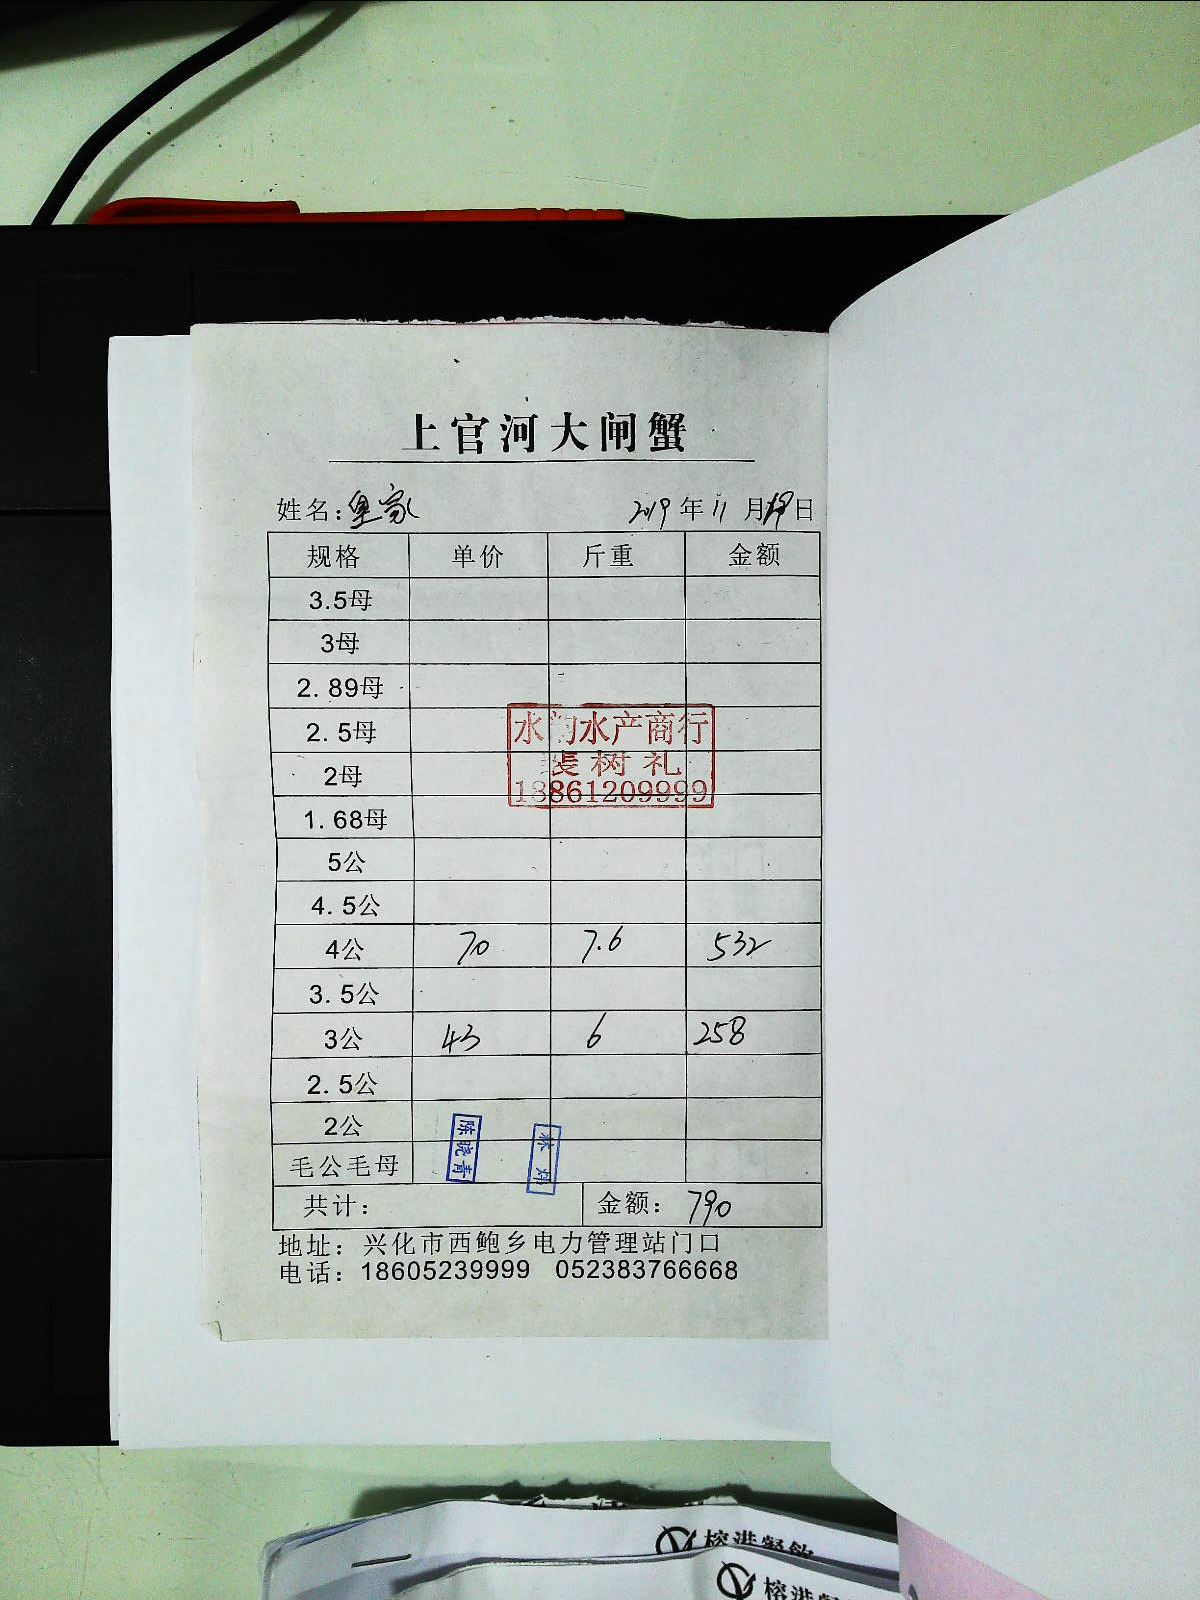 上官河大闸蟹
姓名： 2019年11月19日
规格 单价 斤重 金额
3.5母
3母
2.89母
2.5母
2母
1.68母
水 水产商行
裴树礼
18861209999
5公
4.5公
4公 70 7.6 532
3.5公
3公 43 6 258
2.5公
2公
毛公毛母
陈晓青
林
共计： 金额：790
地址：兴化市西鲍乡电力管理站门口
电话：18605239999 052383766668
榕港餐饮
榕港餐